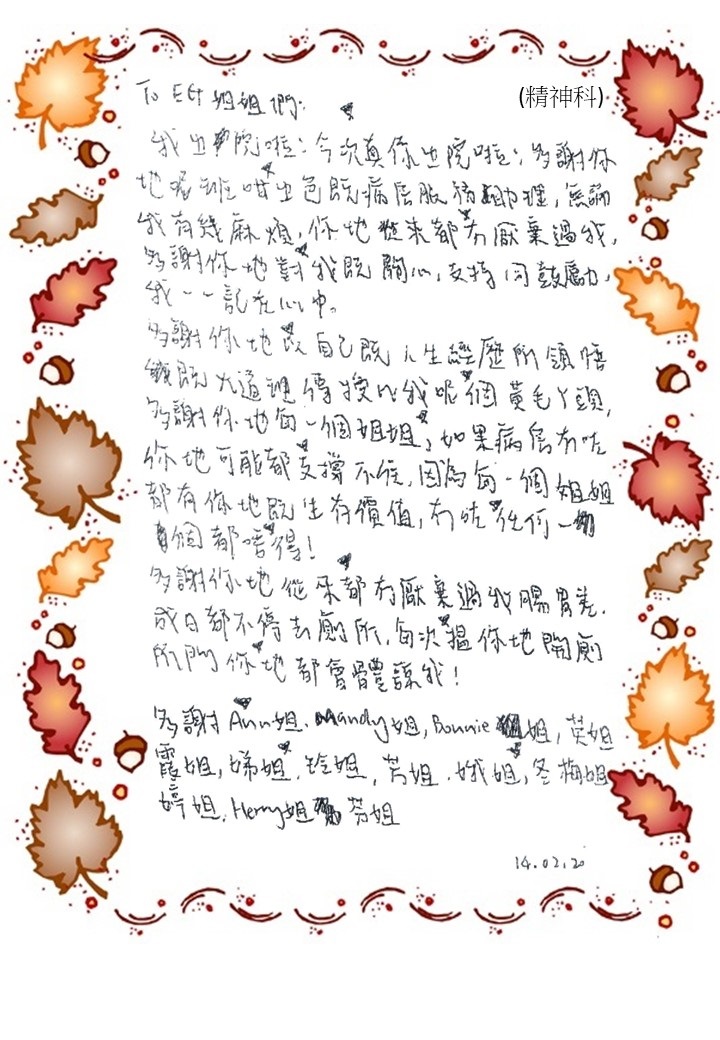 To EG1 姐姐們: (精神科)
我出院啦! 今次真係出院啦! 多謝你
地呢班咁出色既病房服務助理, 無論
我有幾麻煩, 你地從來都冇厭棄過我,
多謝你地對我既關心, 支持同鼓勵,
我一一記在心中。
多謝你地以自己既人生經歷所領悟
既大道理傳授比我呢個黃毛丫頭,
多謝你地每一個姐姐, 如果病房冇咗
你地可能都支撐不住, 因為每一個姐姐
都有你地既生存價值, 冇咗任何一
個都唔得!
多謝你地從來都冇厭棄過我腸胃差,
成日都不停去廁所, 每次搵你地開廁
所門你地都會體諒我!
多謝 Ann姐, Mandy姐, Bonnie 姐, 英姐
霞姐, 娣姐, 玲姐, 芳姐, 娥姐, 冬梅姐
婷姐, Henry姐 芬姐
14.02.20